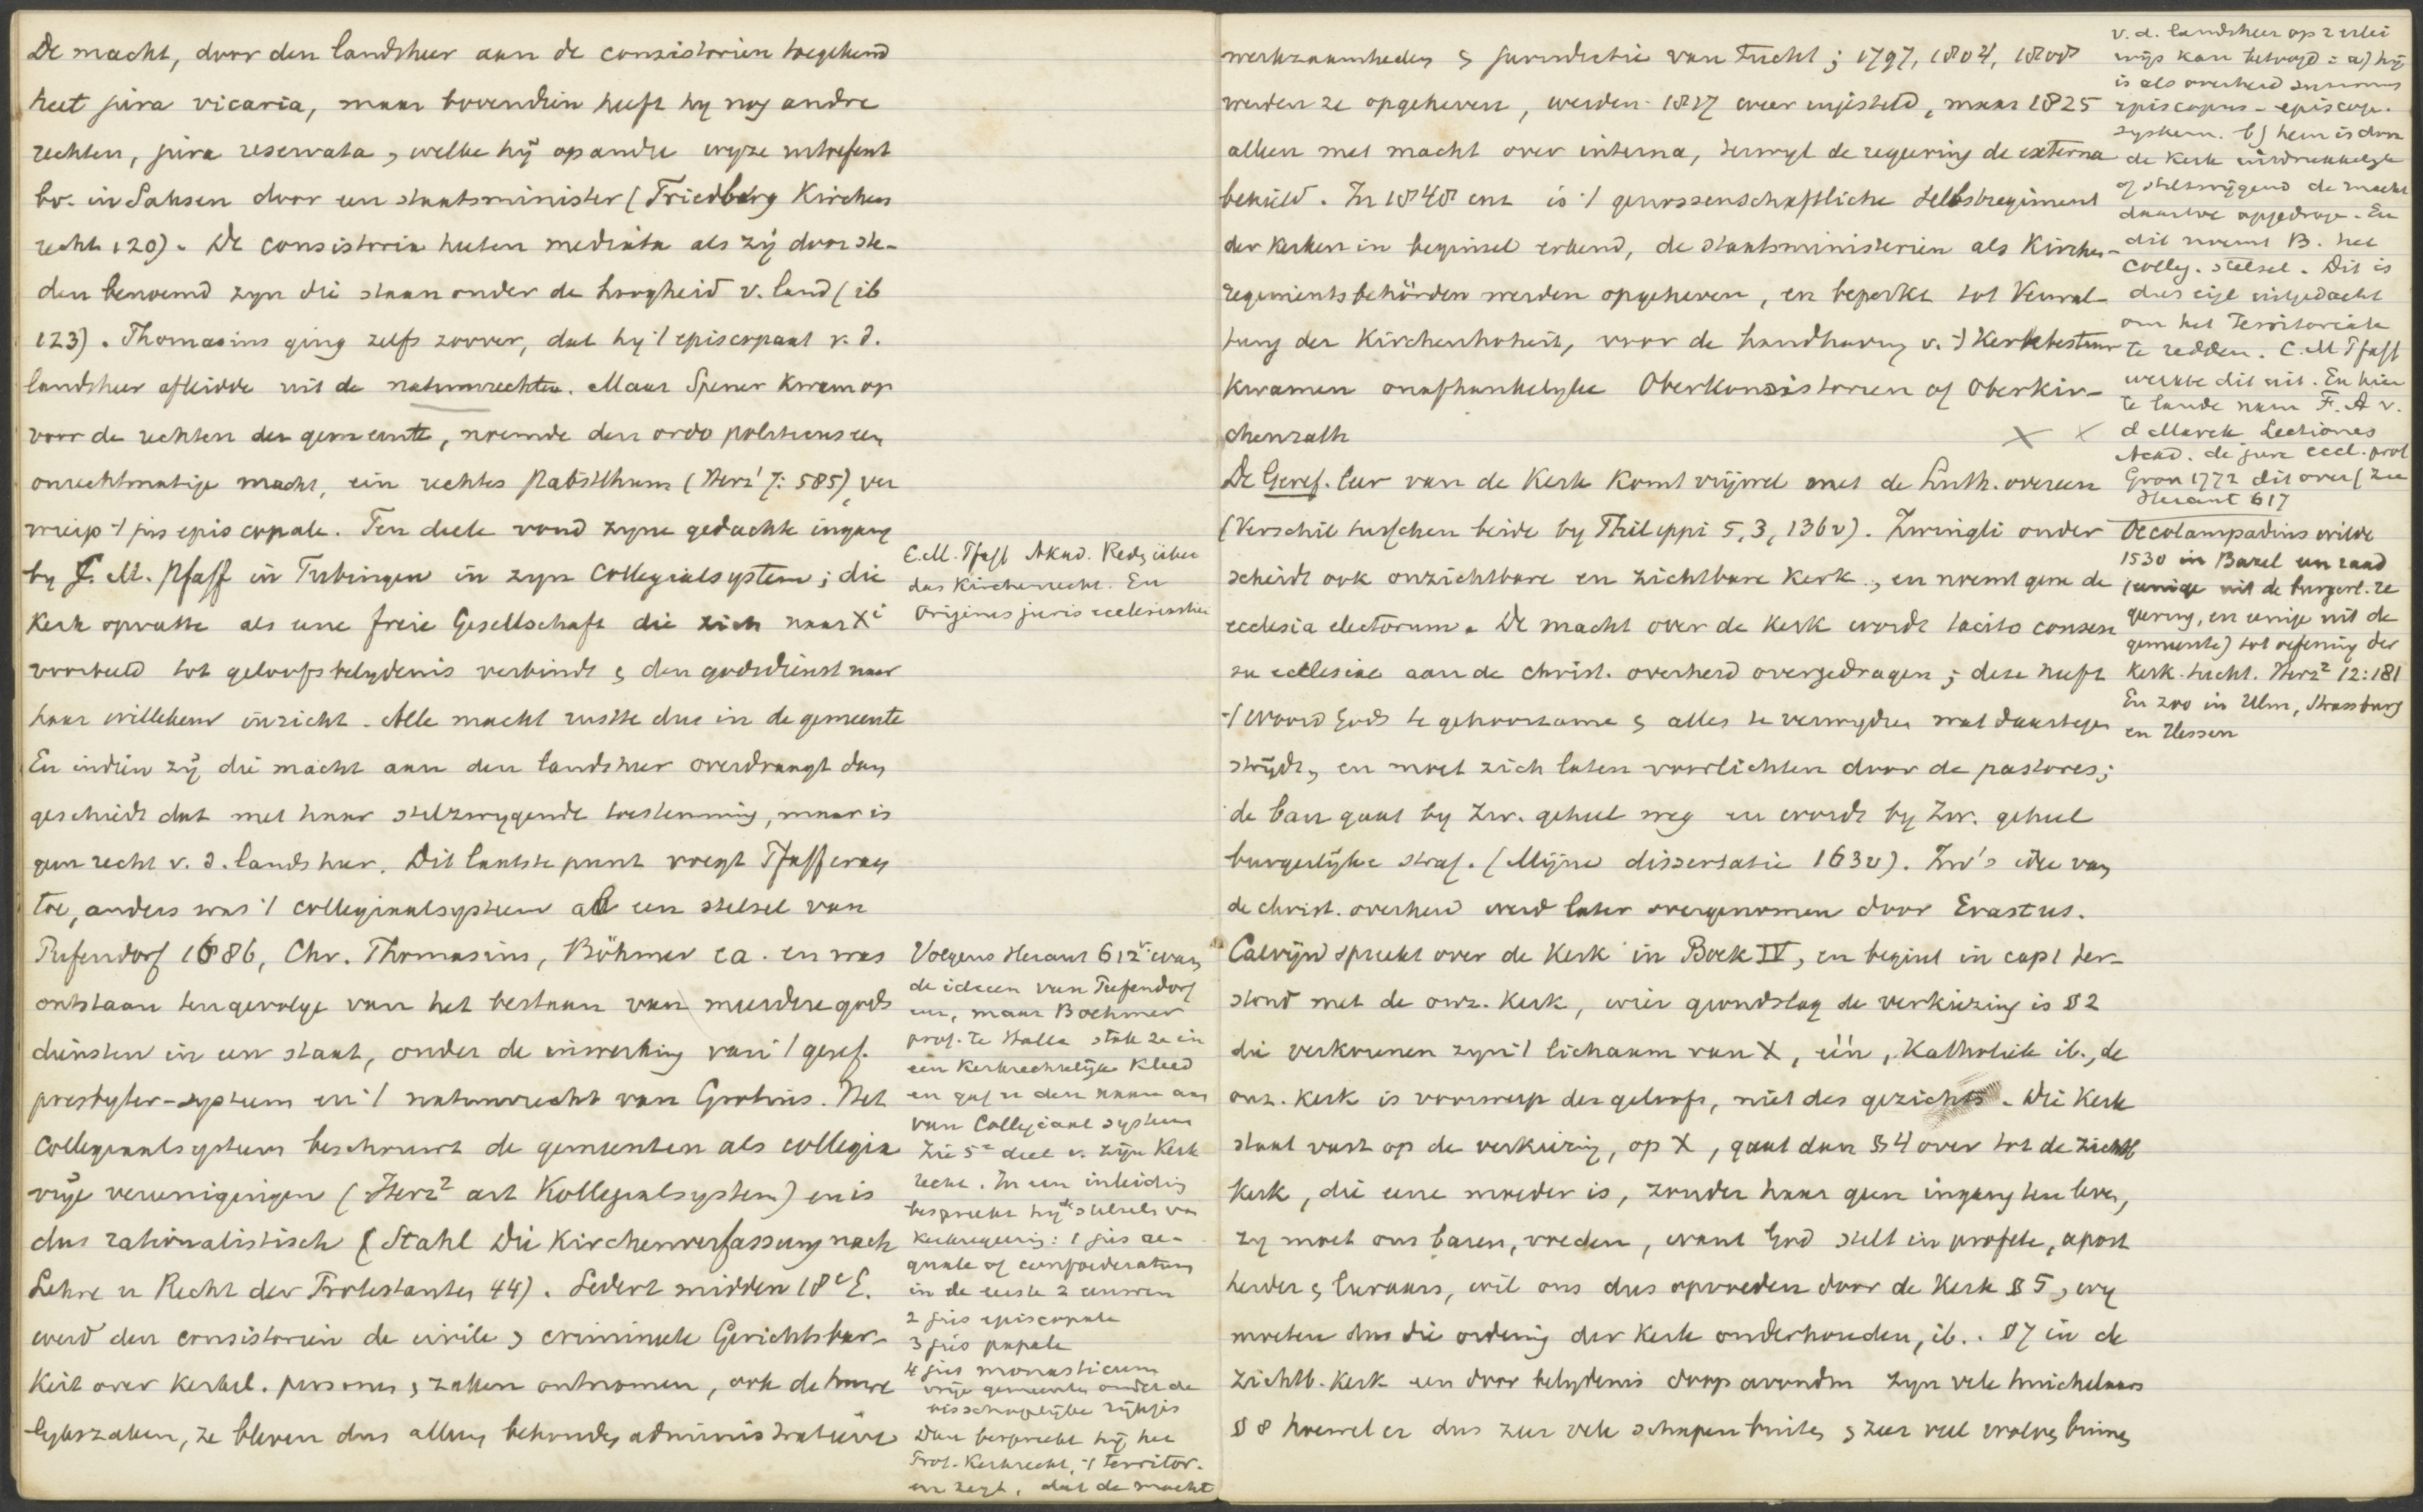 De macht, door den landsheer aan de consistorien toegekend
heet jura vicaria, maar bovendien heeft hy nog andre
rechten, jura reservata, welke hij op andre wyze uitoefent
bv. in Saksen door een staatsminister (Friedberg Kirchen
recht 120). De consistoria heeten mediata als zij door ste-
den benoemd zyn die staan onder de hoogheid v. land (ib
123). Thomasius ging zelfs zoover, dat hy 't episcopaat v. d.
landsheer afleidde uit de natuurrechten. Maar Spener kwam op
voor de rechten der gemeente, noemde den ordo politicus een
onrechtmatige macht, ein rechtes Pabstthum (Herz' 7: 585), ver
wierp 't jus episcopale. Ten deele vond zyne gedachte ingang
by C. M. Pfaff in Tubingen in zyn Collegialsystem; die
Kerk opvatte als eene freie Gesellschaft die zich naar Xi
voorbeeld tot geloofsbelydenis verbindt & den godsdienst naar
haar willekeur inricht. Alle macht rustte dus in de gemeente
En indien zij die macht aan den landsheer overdraagt dan
geschiedt dat met haar stilzwygende toestemming, maar is
geen recht v. d. landsheer. Dit laatste punt voegt Pfaff eraan
toe, anders was 't collegiaalsysteem al een stelsel van
Pufendorf 1686, Chr. Thomasius, Böhmer ea. en was
ontstaan tengevolge van het bestaan van meerdere gods
diensten in een staat, onder de inwerking van 't geref.
presbyter-systeem en 't natuurrecht van Grotius. Het
Collegiaalsysteem beschouwt de gemeenten als collegia
vrije vereenigingen (Herz² art Kollegialsystem) en is
dus rationalistisch (Stahl Die Kirchenverfassung nach
Lehre u Recht der Protestanten 44). Sedert midden 18e E.
werd den consistorien de civile & crimineele Gerichtsbar-
keit over kerkel. personen & zaken ontnomen, ook de huwe
lykszaken, ze bleven dus alleen behouden administratieve
C. M. Pfaff Akad. Reden über
das Kirchenrecht. En
Origines juris ecclesiastici
Volgens Heraut 612v waren
de ideeen van Pufendorf
en, maar Boehmer
prof. te Halle stak ze in
een Kerkrechtelijk Kleed
en gaf er den naam aan
van Collegiaal systeem
Zie 5e deel v. zijn Kerk
recht. In een inleiding
bespreekt hij de stelsels van
Kerkregeering: 1 jus ae-
quale of confoederatum
in de eerste 2 eeuwen
2 jus episcopale
3 jus papale
4 jus monasticum
vrije gemeenten onder de
bisschoppelijke
Dan bespreekt hij het
Prot. Kerkrecht, 't territor.
en zegt, dat de macht
werkzaamheden & jurisdictie van Tucht; 1797, 1804, 1808
werden ze opgeheven, werden 1817 weer ingesteld, maar 1825
alleen met macht over interna, terwyl de regeering de externa
behield. In 1848 enz is 't genossenschaftliche Selbstregiment
der kerken in beginsel erkend, de staatsministerien als Kirchen-
regimentsbehörden werden opgeheven, en beperkt tot Verwal-
tung der Kirchenhoheit, voor de handhaving v. 't Kerkbestuur
kwamen onafhankelyke Oberkonsistorien of Oberkir-
chenrath
De Geref. leer van de Kerk komt vrijwel met de Luth. overeen
(Verschil tusschen beide by Philippi 5, 3, 136v). Zwingli onder
scheidt ook onzichtbare en zichtbare Kerk, en noemt gene de
ecclesia electorum. De macht over de Kerk wordt tacito consen
su ecclesiae aan de christ. overheid overgedragen; deze heeft
't woord Gods te gehoorzamen & alles te verwydren wat daartegen
strijdt, en moet zich laten voorlichten door de pastores;
de ban gaat by Zw. geheel weg en wordt by Zw. geheel
burgerlijke straf. (Mijne dissertatie 163v). Zw's idee van
de christ. overheid werd later overgenomen door Erastus.
Calvijn spreekt over de Kerk in Boek IV, en begint in cap 1 ter-
stond met de onz. Kerk, wier grondslag de verkiezing is § 2
die verkorenen zyn 't lichaam van X, één, Katholiek ib., de
onz. Kerk is voorwerp des geloofs, niet des gezichts. Die Kerk
staat vast op de verkiezing, op X, gaat dan § 4 over tot de zichtb
Kerk, die eene moeder is, zonder haar geen ingang ten leven,
zy moet ons baren, voeden, want God stelt in profete, apost
herder & leeraars, wil ons dus opvoeden door de Kerk § 5, wy
moeten dus die ordening der Kerk onderhouden, ib. . § 7 in de
zichtb. Kerk een door belydenis doop avondm zyn vele huichelaars
§ 8 hoewel er dus zeer vele schapen buiten & zeer veel wolven binnen
v. d. landsheer op 2 erlei
wijs kan betoogd: a) hij
is als overheid summus
episcopus - episcop.
systeem. b) hem is door
de Kerk uitdrukkelyk
of stilzwijgend de macht
daartoe opgedrage. En
dit noemt B. het
Colleg. stelsel. Dit is
dus eigl uitgedacht
om het Territoriale
te redden. C. M Pfaff
werkte dit uit. En hier
te lande nam F. A v.
d Marck Lectiones
Acad. de jure eccl. prot
Gron 1772 dit over (zie
Heraut 617
Oecolampadius wilde
1530 in Bazel een raad
(eenige uit de burgerl. re
geering, en eenige uit de
gemeente) tot oefening der
Kerk. tucht. Herz² 12:181
En zoo in Ulm, Strassburg
en Hessen